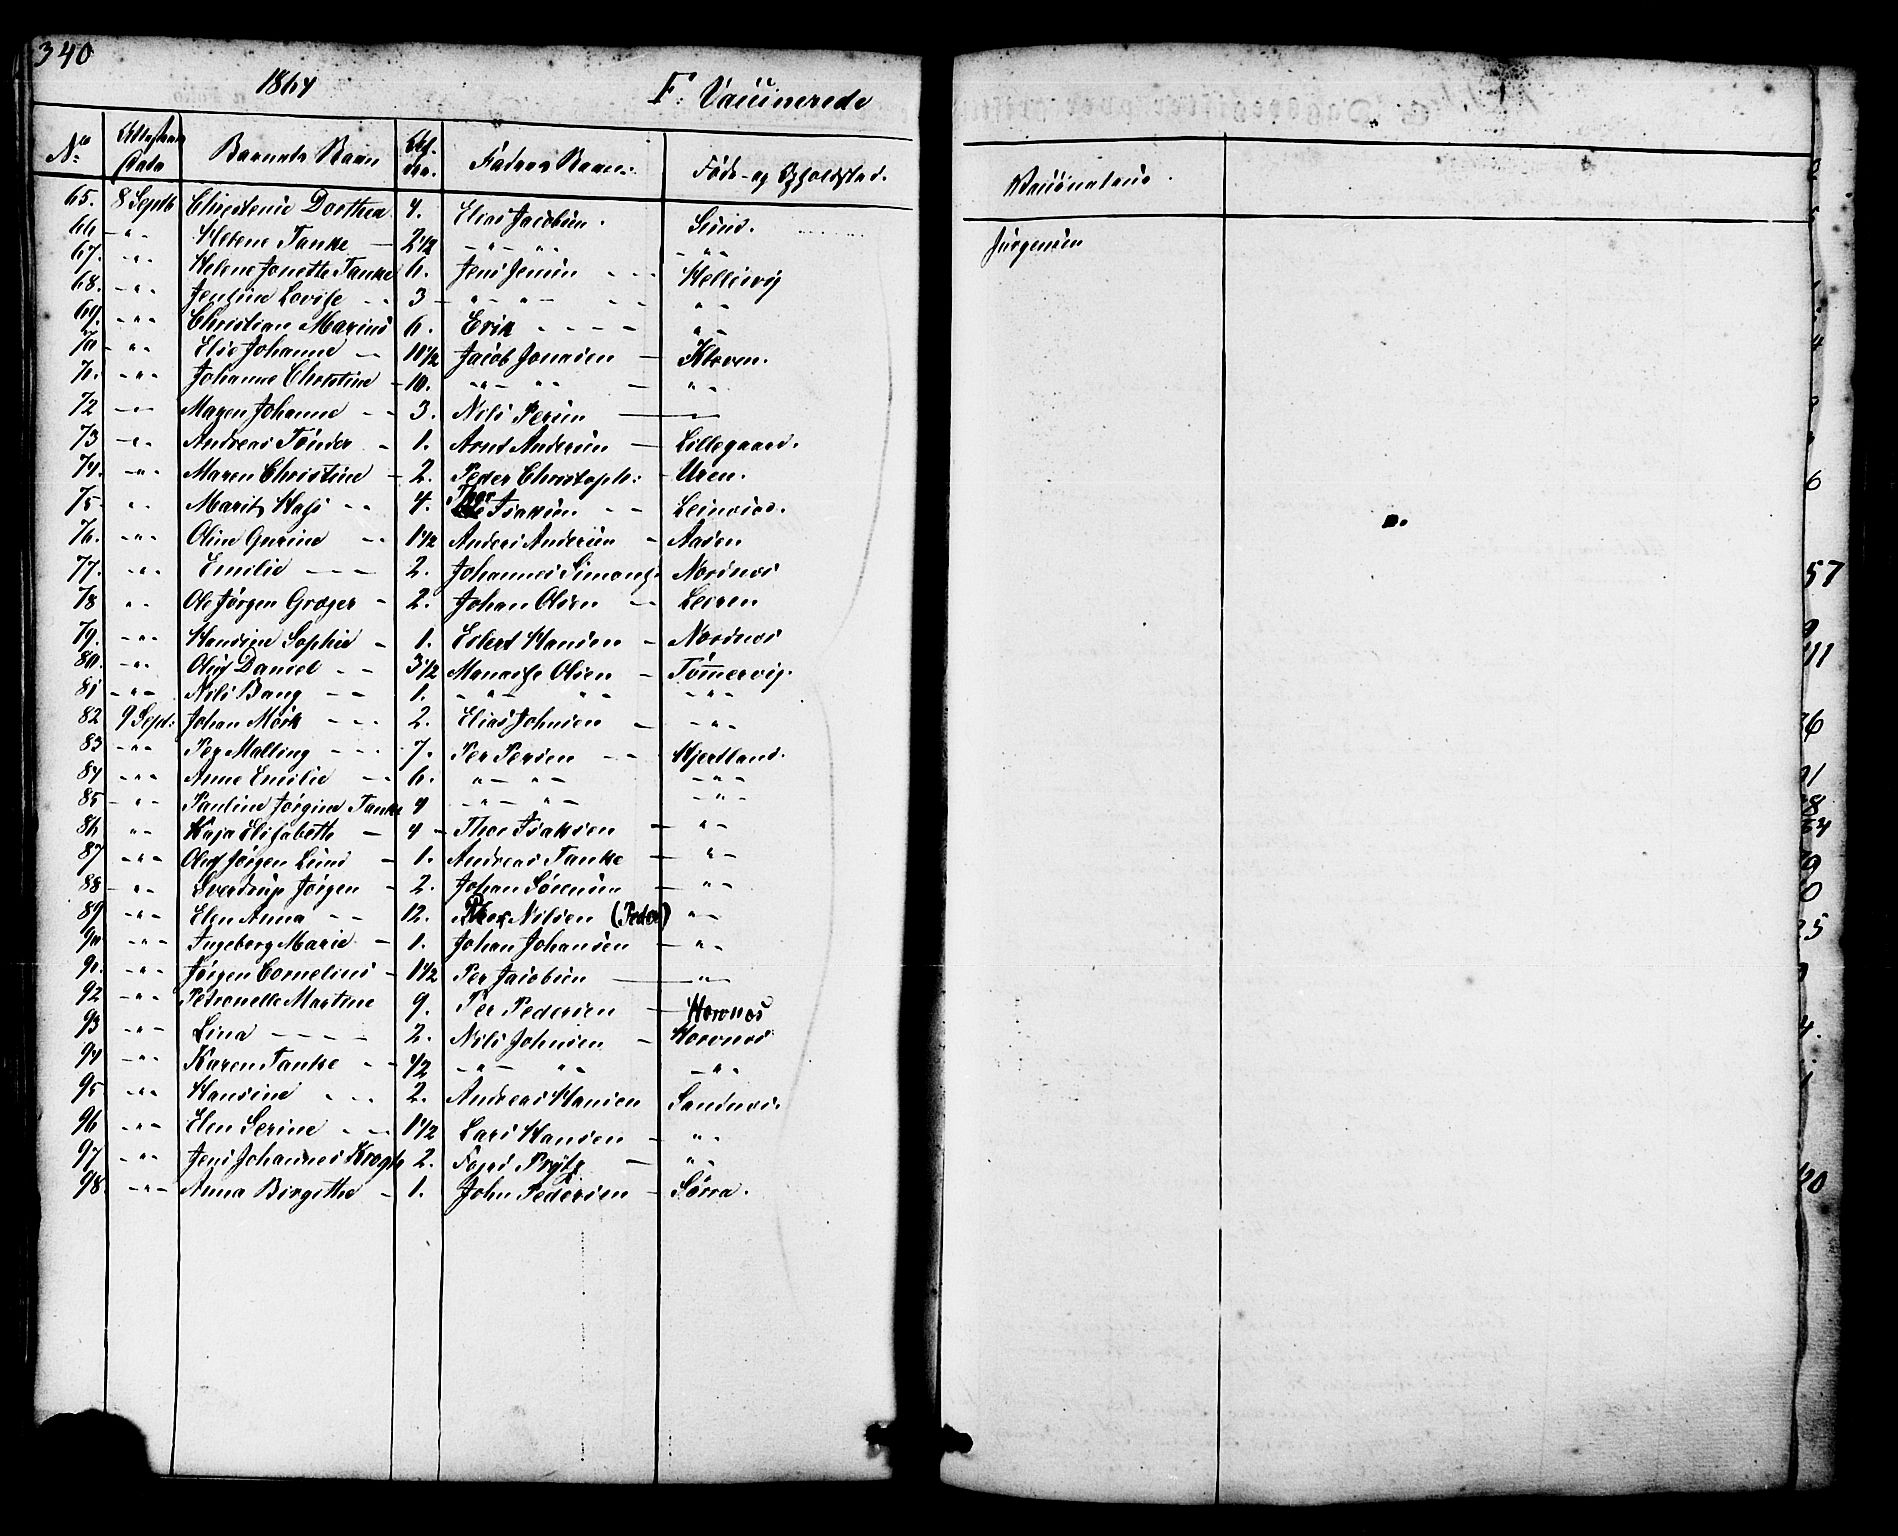 340
1864 F. Vaccinerede
No Attestens Data Barnets Navn Alder. Fadrens Navn. Føde- og Opholdsted. Vaccinateur.
65. 8 Septb Christense Dorthea 4. Elias Jacobsen. Sund. Jørgensen
66 - " - Helene Tanke - 2 1/2 - " - " " - " "
67. - " - Helene Jonette Tanke 6. Jens Jensen - - - Hellesvig
68. - " - Jensine Lovise - - 3 - " - " - - - " "
69. - " - Christian Marius 6. Erik - - - - " -
70 - " - Else Johanne - 10 1/2 Jacob Jonassen - Kleven.
71. - " - Johanne Christine - 10. " - " " - " "
72 - " - Magen Johanne - - 3. Nils Persen
73 - " - Andreas Tønder - 1. Arnt Andersen - Lillegaard.
74. - " - Maren Christine - 2. Peder Christoph: - Uren.
75 - " - Marit Hass - - 4. Thor Isaksen - - Leinvis.
76. - " - Oline Gurine - - 1 1/2 Anders Andersen - Aasen
77. - " - Emilie - - - 2. Johannes Simons. Nordnes
78 " - Ole Jørgen Grøger - 2. Johan Olsen - - Leiren
79. - " - Hansine Sophie - 1. Edvert Hansen - Nordnes
80. - " - Oluf Daniel - - 3 1/2 Manasse Olsen - Tømmervig.
81 - " - Nils Bang - - 1. - " - " " - " -
82 9 Sept: Johan Mörk - - - 2. Elias Johnsen - - " -
83 - " - Per Malling - - - 7. Per Persen - - Hjertland.
84 - " - Anne Emilie - - 6. " - " - - " -
85 - " - Pauline Jørgine Tanke 4 - " - " - - " -
86 " - Kaja Elisabeth - 4 - Thor Isaksen - " -
87 - " - Oluf Jørgen Lund - 1. Andreas Tanke - " -
88 - " - Sverdrup Jörgen - 2. Johan Sørensen - " -
89 - " - Elen Anna - - 12. Nilsen (Peder) " -
90 - " - Ingeborg Marie - 1. Johan Johansen - " -
91. - " - Jörgen Cornelius - 1 1/2 Per Jacobsen - " -
92 - " - Petronelle Martine 9. Per Pedersen - Hornnes
93 - " - Lina - - - - 2. Nils Johnsen - Hornnes
94 - " - Karen Tanke - - 1/2 - " - " " - " -
95 - " - Hansine - - - 2. Andreas Hansen Sandnes.
96 - " - Elen Serine - - 1 1/2 Lars Hansen - " -
97 - " - Jens Johannes Krogh 2. Prytz - " -
98. - " - Anna Birgithe - 1. John Pedersen - Sörra.
57